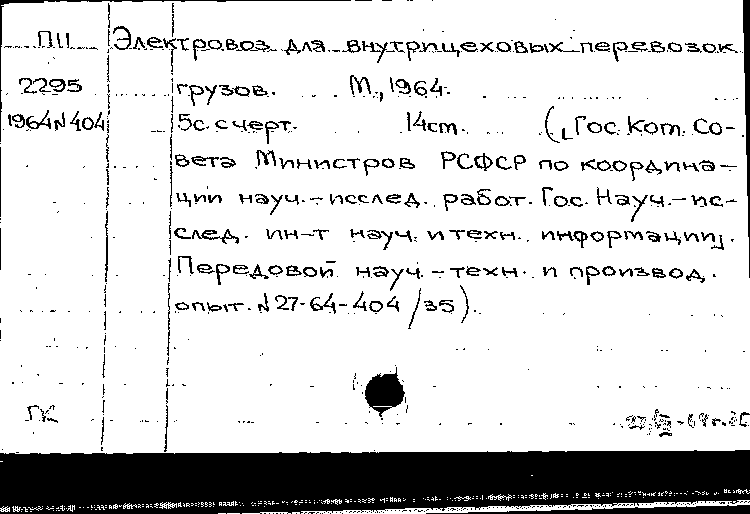 ПII Электровоз для внутрицеховых перевозок
2295 грузов. М., 1964.
1964 N 404 5с. с черт. 14 cm. ([Гос. Ком. Со-
вета Министров РСФСР по координа-
ции науч.-исслед. работ. Гос. Науч.-ис-
след. ин-т науч. и техн. информации].
Передовой науч.-техн. и производ.
опыт. N 27-64-404/35).
ГК